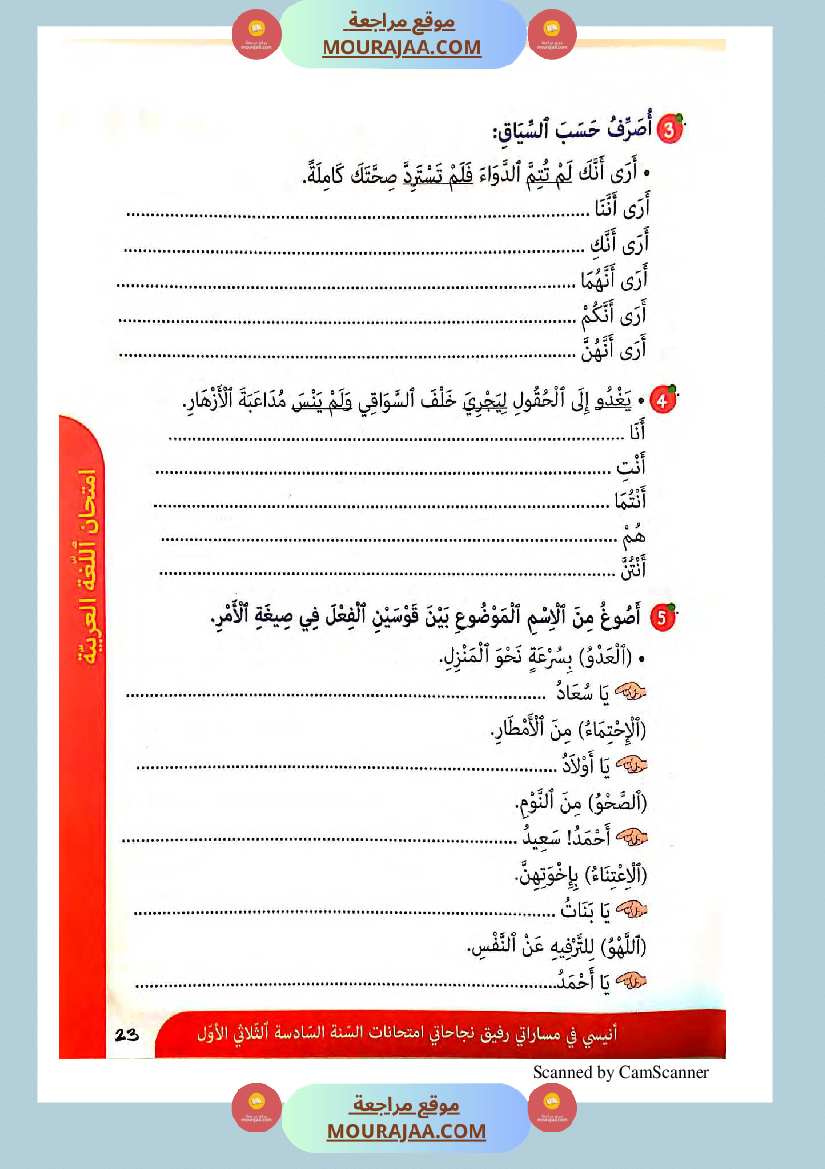 موقع مراجعة
MOURAJAA.COM
3 أُصَرِّفُ حَسَبَ ٱلسِّيَاقِ:
• أَرَى أَنَّكَ لَمْ تُتِمَّ ٱلدَّوَاءَ فَلَمْ تَسْتَرِدَّ صِحَّتَكَ كَامِلَةً.
أَرَى أَنَّنَا
أَرَى أَنَّكِ
أَرَى أَنَّهُمَا
أَرَى أَنَّكُمْ
أَرَى أَنَّهُنَّ
4 • يَغْدُو إِلَى ٱلْحُقُولِ لِيَجْرِيَ خَلْفَ ٱلسَّوَاقِي وَلَمْ يَنْسَ مُدَاعَبَةَ ٱلْأَزْهَارِ.
أَنَا
أَنْتِ
أَنْتُمَا
هُمْ
أَنْتُنَّ
5 أَصُوغُ مِنَ ٱلْاِسْمِ ٱلْمَوْضُوعِ بَيْنَ قَوْسَيْنِ ٱلْفِعْلَ فِي صِيغَةِ ٱلْأَمْرِ.
• (ٱلْعَدْوُ) بِسُرْعَةٍ نَحْوَ ٱلْمَنْزِلِ.
يَا سُعَادُ
(ٱلْإِحْتِمَاءُ) مِنَ ٱلْأَمْطَارِ.
يَا أَوْلَادُ
(ٱلصَّحْوُ) مِنَ ٱلنَّوْمِ.
أَحْمَدُ! سَعِيدُ
(ٱلْاِعْتِنَاءُ) بِإِخْوَتِهِنَّ.
يَا بَنَاتُ
(ٱللَّهْوُ) لِلتَّرْفِيهِ عَنْ ٱلنَّفْسِ.
يَا أَحْمَدُ
امتحان اللّغة العربيّة
أنيسي في مساراتي رفيق نجاحاتي امتحانات السّنة السّادسة الثّلاثي الأوّل
23
Scanned by CamScanner
موقع مراجعة
MOURAJAA.COM